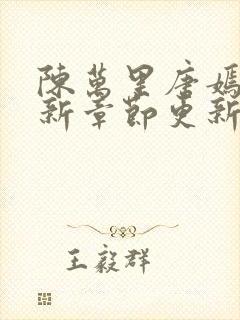 陳萬里唐嫣
新章節更新
王毅群